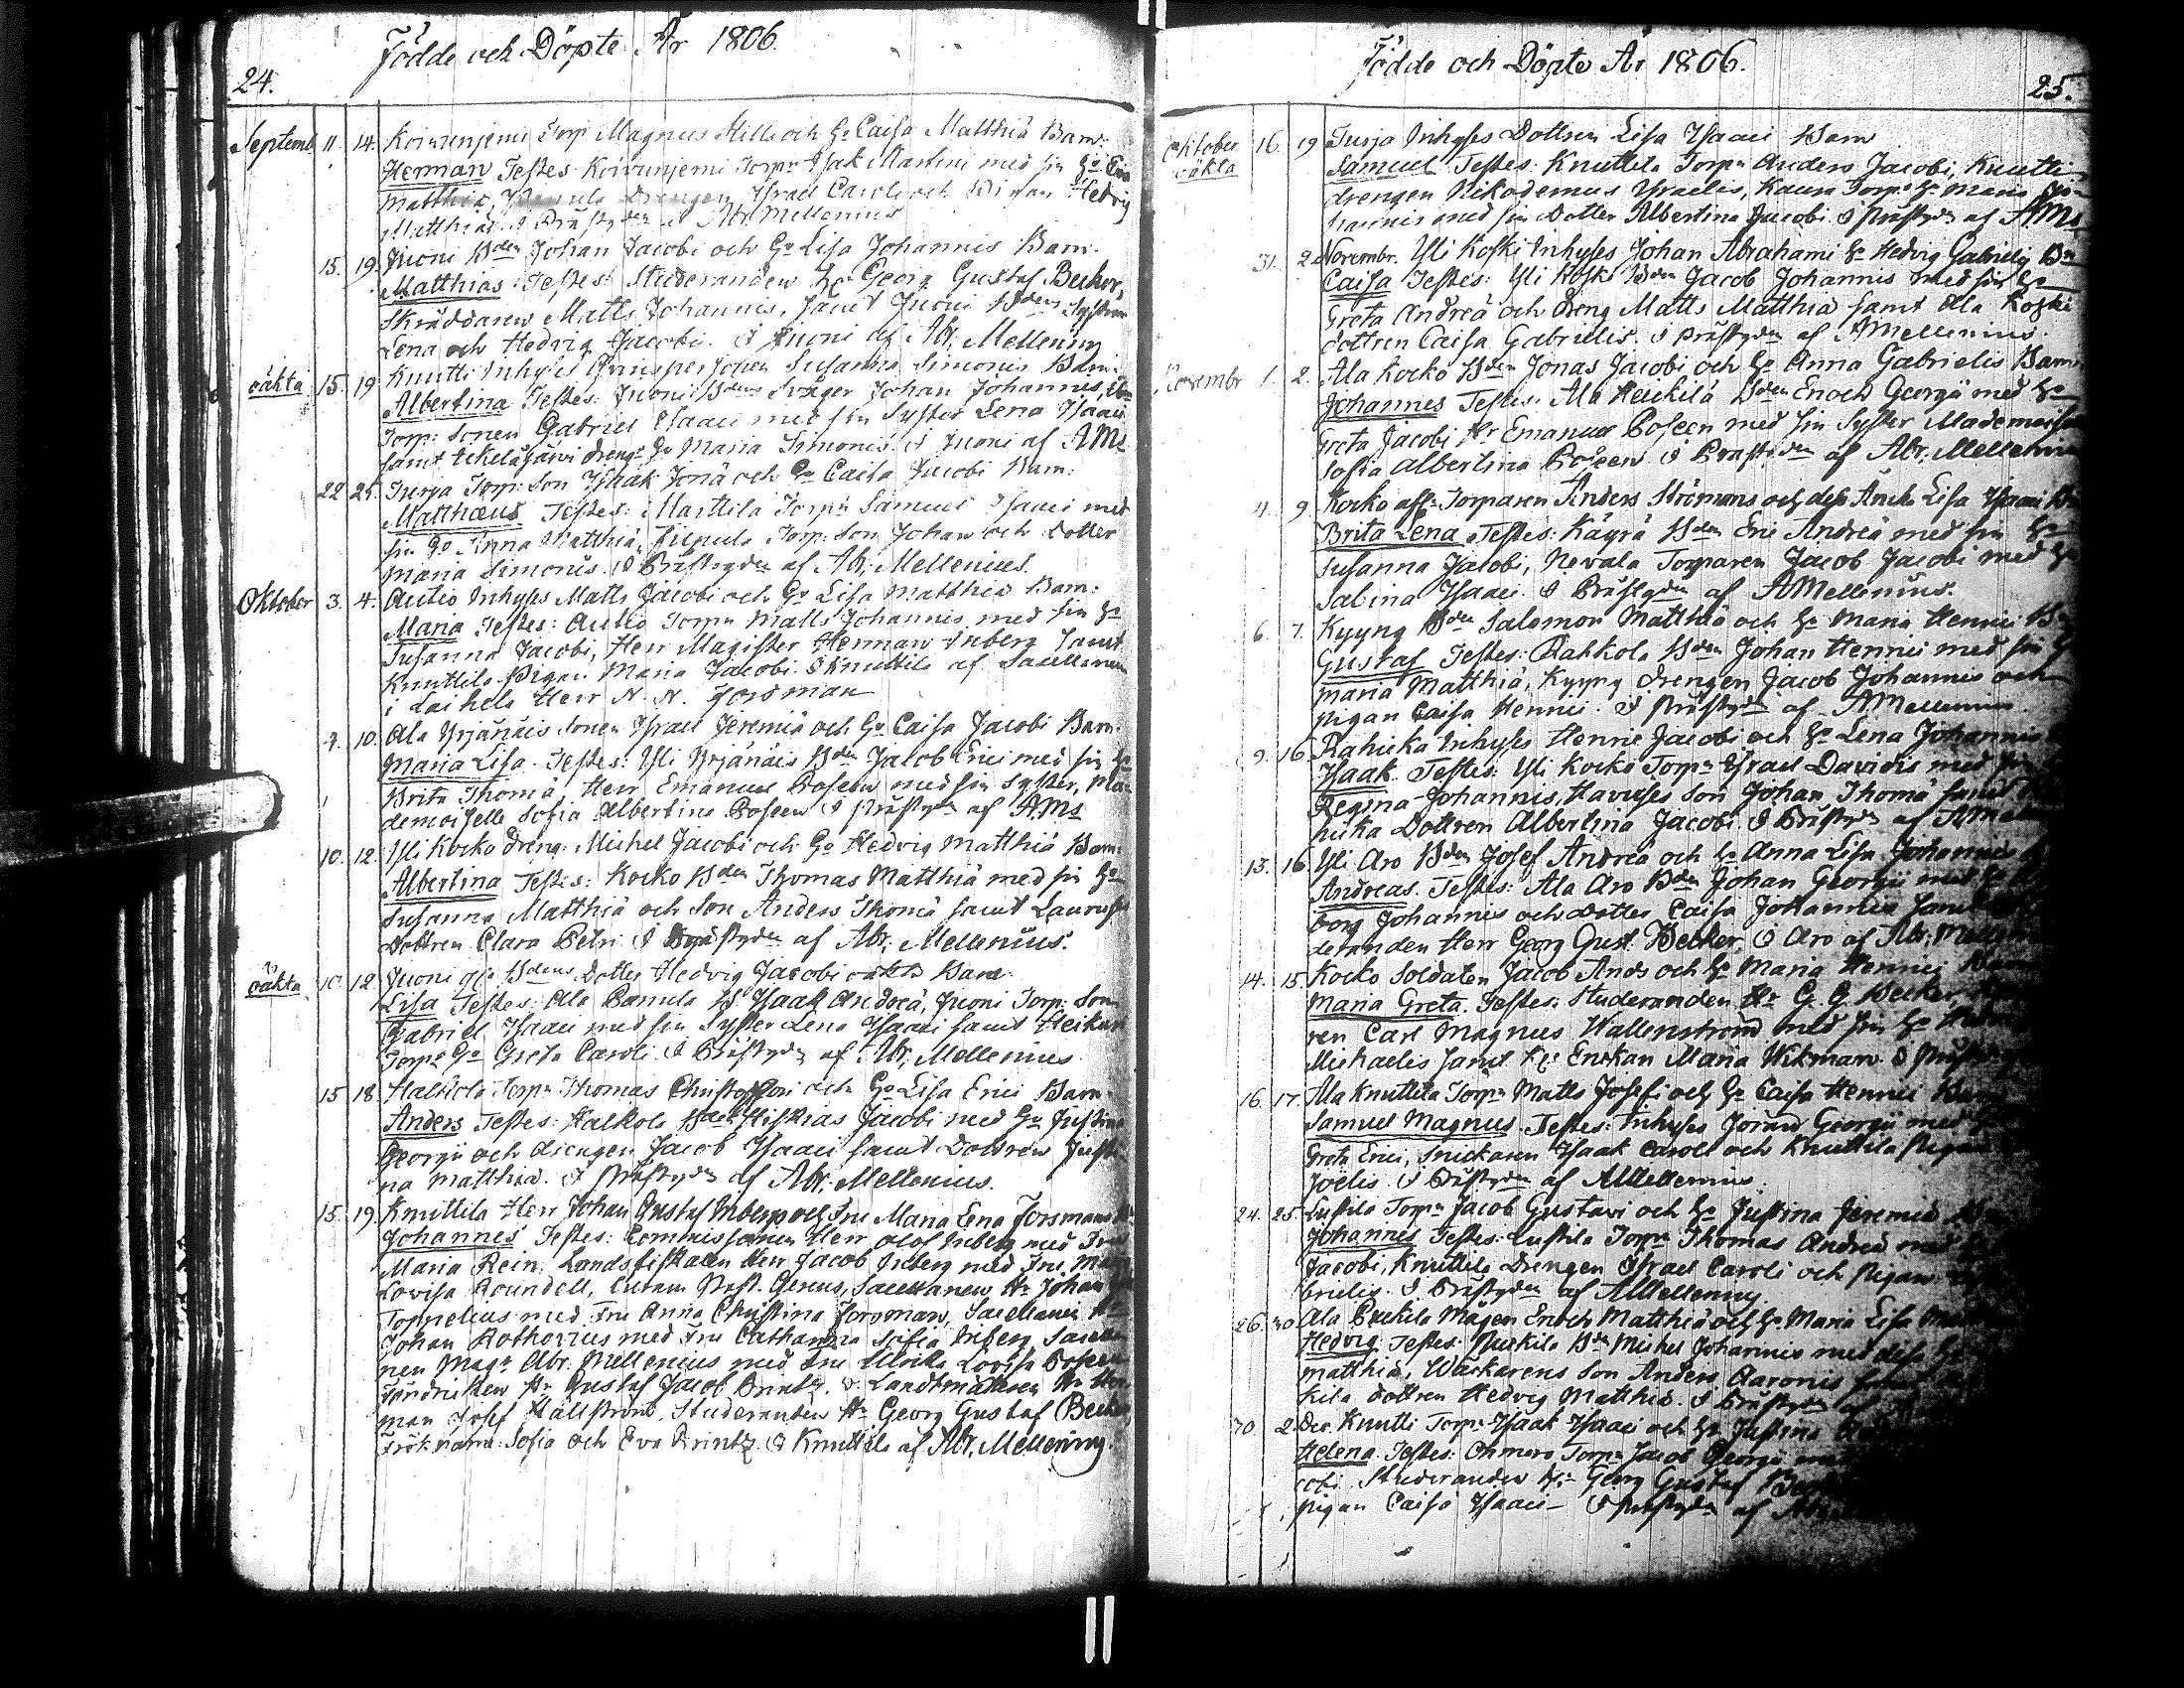 Födde och Döpte År 1806.
24.
Septemb. 11. 14. Koivunjemi Torp. Magnus Hille och H. Caisa Matthiä Barn:
Herman Testes: Koivunjemi Torpn Isak Martini med sin H. Eva
Matthiä, drengen Israel Caroli och Pigan Hedvig
Matthiä. I Prästgden af Abr. Mellenius
15. 19. Juoni Bden Johan Jacobi och Ho Lisa Johannis Barn.
Matthias. Testes: Studeranden Hr Georg Gustaf Becker,
Skräddaren Matts Johannis, samt Juoni Bdens Systrar
Lena och Hedvig Jacobi. I Juoni af Abr. Mellenius
oäkta 15. 19 Knutti Inhyses Qvinspersonen Susanna Simonis Barn.
Albertina Testes: Juoni Bdens Svåger Johan Johannis,
Torp: Sonen Gabriel Isaaci med sin Syster Lena Isaaci
samt drengs Ho Maria Simonis. I Juoni af AMs
22 25. Turja Torp: Son Isaak Jonä och Ho Caisa Jacobi Barn:
Matthæus Testes: Marttila Torpn Samuel Isaaci med
sin Ho Anna Matthiä, Filpula Torp: Son Johan och Dotter
Maria Simonis. I Prästegden af Abr. Mellenius.
Oktober 3. 4. Autio Inhyses Matts Jacobi och Ho Lisa Matthiä Barn:
Maria Testes: Autio Torpn Matts Johannis med sin Ho
Susanna Jacobi, Herr Magister Herman Inberg samt
Knuttila Pigan Maria Jacobi. I Knuttila af Sacellanen
i Laihela Herr N. N. Forsman
4. 10. Ala Yrjänäis Sonen Israel Jeremiä och Ho Caisa Jacobi Barn.
Maria Lisa. Testes: Yli Yrjänäis Bden Jacob Erici med sin Ho
Brita Thomä, Herr Emanuel Poseen med sin Syster, Ma-
demoiselle Sofia Albertina Poseen I Prästgn af AMs
10. 12. Yli Kocko dreng: Michel Jacobi och Ho Hedvig Matthiä Barn:
Albertina Testes: Kocko Bden Thomas Matthiä med sin Ho
Susanna Matthiä och Son Anders Thomä samt
Dottren Clara Petri I Prästgden af Abr. Mellenius.
oäkta 10. 12 Juoni Bdens Dotter Hedvig Jacobi oäkta Barn.
Lisa Testes: Ala Panula B. Isaak Andreä, Juoni Torp: Son
Gabriel Isaaci med sin Syster Lena Isaaci samt
Torps Ho Greta Caroli. I Prästgdn af Abr. Mellenius
15 18. Halkola Torpn Thomas och Ho Lisa Erici Barn.
Anders Testes: Halkola Bden Hiskias Jacobi med Ho Justina
Georgii och drengen Jacob Isaaci samt Dottren Justi-
na Matthiä. I Prästgdn af Abr. Mellenius.
15. 19. Knuttila Herr Johan Gustaf Inberg och Fru Maria Lena Forsmans
Johannes Testes: Commissarien Herr Olof Inberg med Fru
Maria Rein, Landsfiskalen Herr Jacob Inberg med Fru
Lovisa Roundell, Sacellanen Hr Johan
Toppelius med Fru Anna Christina Forsman, Sacellanen Hr
Johan Rothovius med Fru Catharina Sofia Inberg, Sacella-
nen Magr Abr. Mellenius med Fru Ulrika Lovisa Poseen
Hr Gustaf Jacob Printz, Landtmätaren Hr Her-
man Josef Hällström, Studeranden Hr Georg Gustaf Becker,
Fröknarne Sofia och Eva Printz. I Knuttila af Abr. Mellenius.
Födde och Döpte År 1806.
25.
Oktober oäkta 16. 19 Turja Inhyses Dottren Lisa Isaaci Barn
Samuel Testes: Knuttila Torpn Anders Jacobi, Knutti
drengen Nikodemus Israelis, Torps Ho Maria Jo-
hannis med sin Dotter Albertina Jacobi. I Prästgdn af AMs
31. 2 Novembr. Yli Koski Inhyses Johan Abrahami Ho Hedvig Gabrielis Bn
Caisa Testes: Yli Koski Bden Jacob Johannis med sin Ho
Greta Andreä och dreng Matts Matthiä samt Ala Koski
dottren Caisa Gabrielis. I Prästgden af AMellenius.
Novembr 1. 2. Ala Kocko Bden Jonas Jacobi och Ho Anna Gabrielis Barn
Johannes Testes: Ala Heickilä Bden Enoch Georgii med Ho
Greta Jacobi Hr Emanuel Poseen med sin Syster Mademoisell
Sofia Albertina Poseen I Prästgden af Abr. Melleni
4. 9 Kocko Torparen Anders Strömans och dess Enka Lisa Isaaci
Brita Lena Testes: Käyrä Bden Eric Andreä med sin Ho
Susanna Jacobi, Nevala Torparen Jacob Jacobi med Ho
Sabina Isaaci. I Prästgden af AMellenius.
6. 7. Kyyny Bden Salomon Matthiä och Ho Maria Henrici
Gustaf Testes: Rahkola Bden Johan Henrici med sin
Maria Matthiä, Kyyny drengen Jacob Johannis och
pigan Caisa Henrici. I Prästgdn af AMellenius.
9. 16. Rahicka Inhyses Henric Jacobi och Ho Lena Johannis
Isaak. Testes: Yli Kocko Torpn Israel Davidis med sin
Regina Johannis, Son Johan Thomä samt
hicka Dottren Albertina Jacobi. I Prästgn af
13. 16 Yli Aro Bden Josef Andreä och Ho Anna Lisa Johannis
Andreas. Testes: Ala Aro Bden Johan Georgii med Ho
borg Johannis och Dotter Caisa Johannis samt
deranden Herr Georg Gust. Becker. I Aro af Abr. Mellen
14. 15. Kocko Soldaten Jacob Ands och Ho Maria Henrici
Maria Greta. Testes: Studeranden Hr G. G. Becker,
ren Carl Magnus Wallenström med sin Ho
Michaelis samt Enckan Maria Wikman I
16. 17. Ala Knuttila Torpn Matts Josefi och Ho Caisa Henrici
Samuel Magnus. Testes: Inhyses Georgii med
Greta Erici, Snickaren Isaak Caroli och Knuttila Pigan
Joëlis. I Prästgden af AMellenius
24. 25. Luttila Torpn Jacob Gustavi och Ho Justina Jeremiä
Johannes Testes: Luttila Torpn Thomas Andreä med
Jacobi, Knuttila Drengen Israel Caroli och Pigan
brielis. I Prästgden af AMellenius
26. 30. Ala Mågen Enoch Matthiä och Ho Maria Lisa
Hedvig Testes: Bdn Michel Johannis med dess
Matthiä, Son Anders Aaronis
kila dottren Hedvig Matthiä. I Prästgdn af
30 2. Dec. Knutti Torpn Isaak Isaaci och Ho Justina
Helena. Testes: Torpn Jacob Georgii
cobi, Studeranden Hr Georg Gustaf
pigan Caisa Isaaci I Prästgdn af